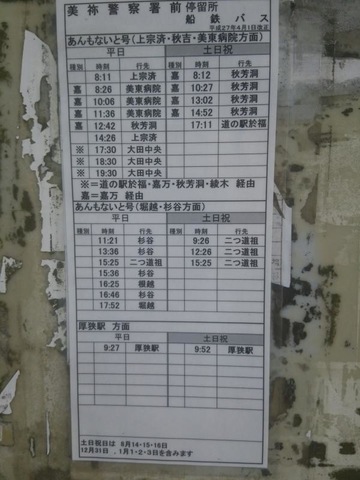 美祢警察署前 停留所
船鉄バス
平成27年4月1日改正
あんもないと号(上宗済・秋吉・美東病院方面)
平日 土日祝
種別 時刻 行先 種別 時刻 行先
8:11 上宗済 嘉 8:12 秋芳洞
嘉 8:26 美東病院 嘉 10:27 秋芳洞
嘉 10:06 美東病院 嘉 13:02 秋芳洞
嘉 11:36 美東病院 嘉 14:52 秋芳洞
嘉 12:42 秋芳洞 17:11 道の駅於福
14:26 上宗済
※ 17:30 大田中央
※ 18:30 大田中央
※ 19:30 大田中央
※=道の駅於福・嘉万・秋芳洞・綾木 経由
嘉=嘉万 経由
あんもないと号(堀越・杉谷方面)
平日 土日祝
種別 時刻 行先 種別 時刻 行先
11:21 杉谷 9:26 二つ道祖
13:36 杉谷 12:26 二つ道祖
15:25 二つ道祖 15:25 二つ道祖
15:36 杉谷
16:25 堀越
16:46 杉谷
17:52 堀越
厚狭駅 方面
平日 土日祝
種別 時刻 行先 種別 時刻 行先
9:27 厚狭駅 9:52 厚狭駅
土日祝日は 8月14・15・16日
12月31日 、1月1・2・3日を含みます